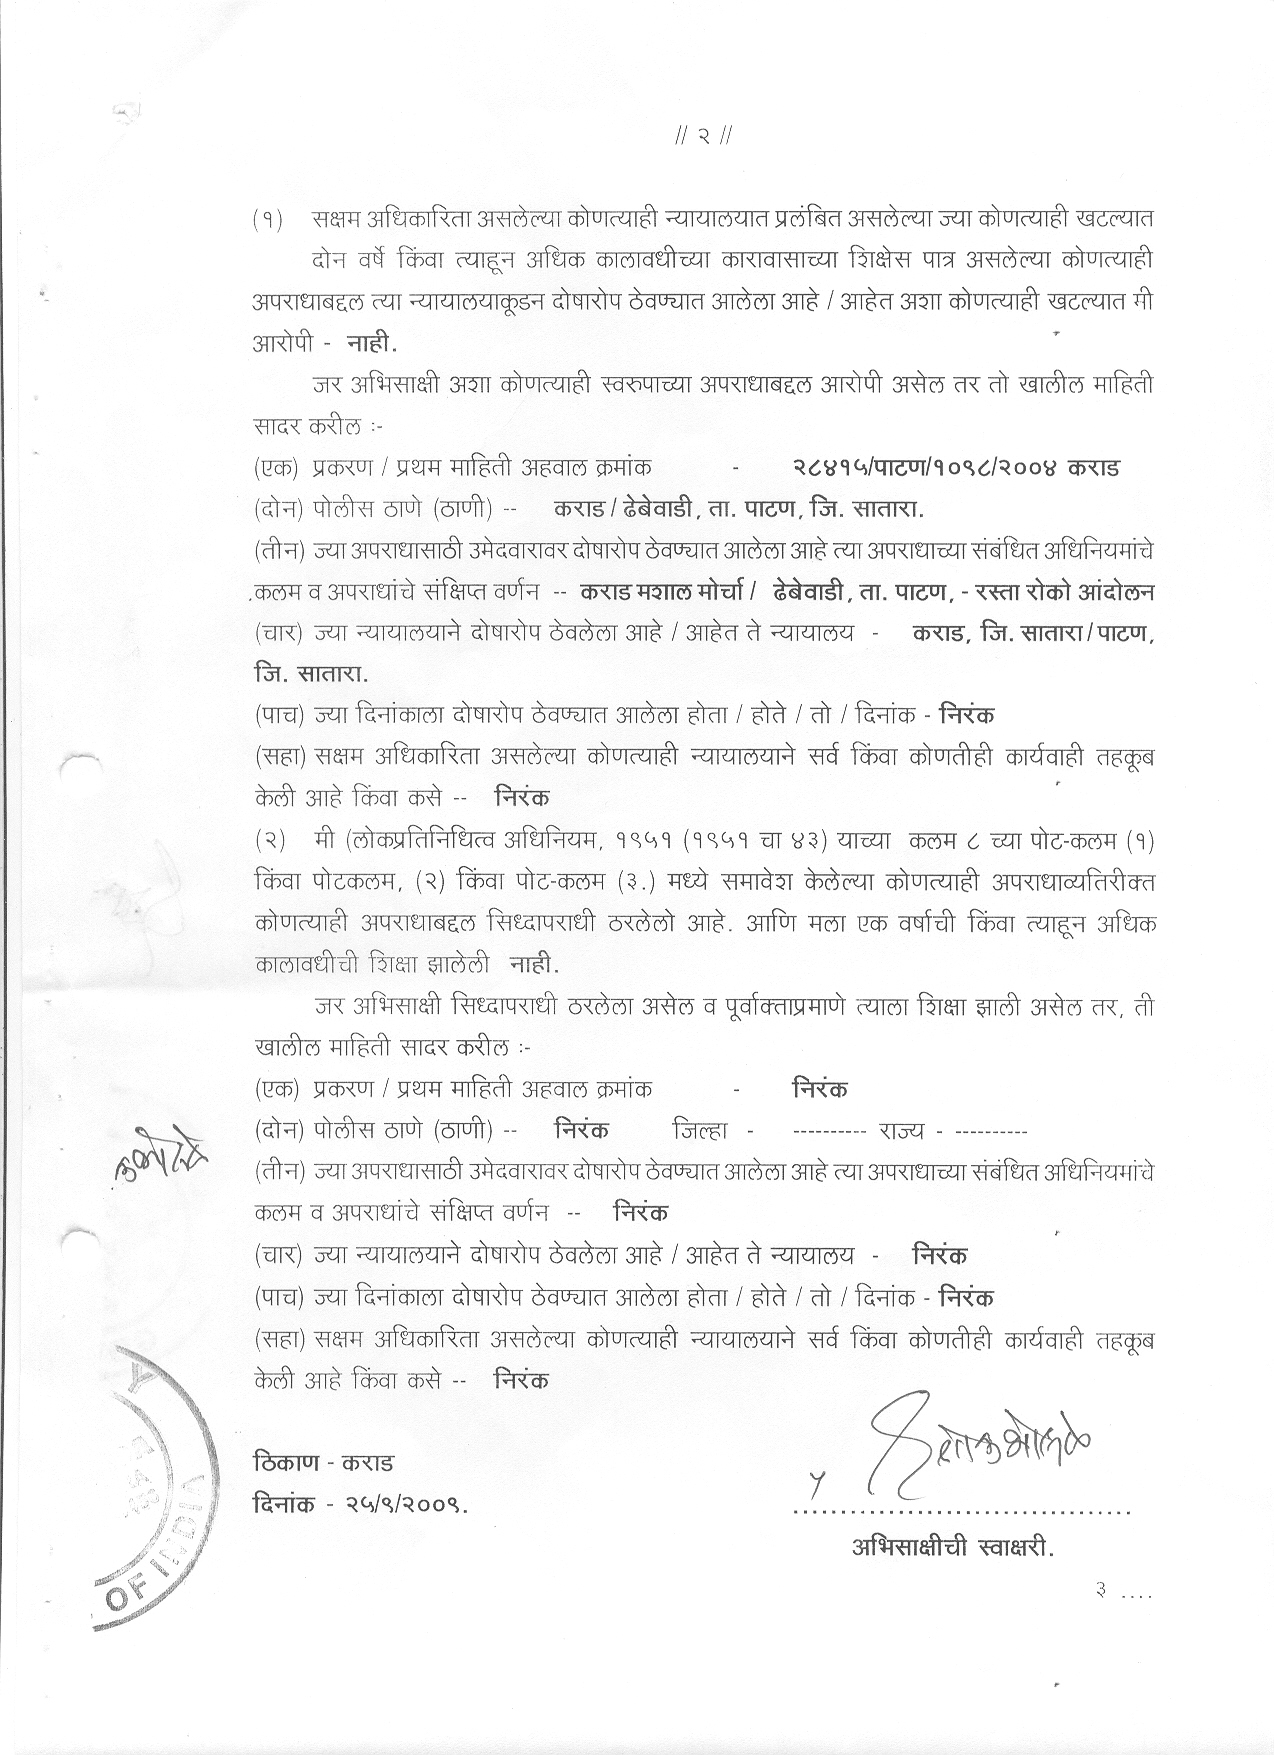 // २ //
(१) सक्षम अधिकारिता असलेल्या कोणत्याही न्यायालयात प्रलंबित असलेल्या ज्या कोणत्याही खटल्यात
दोन वर्षे किंवा त्याहून अधिक कालावधीच्या कारावासाच्या शिक्षेस पात्र असलेल्या कोणत्याही
अपराधाबद्दल त्या न्यायालयाकूडन दोषारोप ठेवण्यात आलेला आहे / आहेत अशा कोणत्याही खटल्यात मी
आरोपी - नाही.
जर अभिसाक्षी अशा कोणत्याही स्वरुपाच्या अपराधाबद्दल आरोपी असेल तर तो खालील माहिती
सादर करील :-
(एक) प्रकरण / प्रथम माहिती अहवाल क्रमांक - २८४१५/पाटण/१०९८/२००४ कराड
(दोन) पोलीस ठाणे (ठाणी) -- कराड / ढेबेवाडी, ता. पाटण, जि. सातारा.
(तीन) ज्या अपराधासाठी उमेदवारावर दोषारोप ठेवण्यात आलेला आहे त्या अपराधाच्या संबंधित अधिनियमांचे
कलम व अपराधांचे संक्षिप्त वर्णन -- कराड मशाल मोर्चा / ढेबेवाडी, ता. पाटण, - रस्ता रोको आंदोलन
(चार) ज्या न्यायालयाने दोषारोप ठेवलेला आहे / आहेत ते न्यायालय - कराड, जि. सातारा/पाटण,
जि. सातारा.
(पाच) ज्या दिनांकाला दोषारोप ठेवण्यात आलेला होता / होते / तो / दिनांक - निरंक
(सहा) सक्षम अधिकारिता असलेल्या कोणत्याही न्यायालयाने सर्व किंवा कोणतीही कार्यवाही तहकूब
केली आहे किंवा कसे -- निरंक
(२) मी (लोकप्रतिनिधित्व अधिनियम, १९५१ (१९५१ चा ४३) याच्या कलम ८ च्या पोट-कलम (१)
किंवा पोटकलम, (२) किंवा पोट-कलम (३.) मध्ये समावेश केलेल्या कोणत्याही अपराधाव्यतिरीक्त
कोणत्याही अपराधाबद्दल सिध्दापराधी ठरलेलो आहे. आणि मला एक वर्षाची किंवा त्याहून अधिक
कालावधीची शिक्षा झालेली नाही.
जर अभिसाक्षी सिध्दापराधी ठरलेला असेल व पूर्वाक्ताप्रमाणे त्याला शिक्षा झाली असेल तर, ती
खालील माहिती सादर करील :-
(एक) प्रकरण / प्रथम माहिती अहवाल क्रमांक - निरंक
(दोन) पोलीस ठाणे (ठाणी) -- निरंक जिल्हा - ---------- राज्य - ----------
(तीन) ज्या अपराधासाठी उमेदवारावर दोषारोप ठेवण्यात आलेला आहे त्या अपराधाच्या संबंधित अधिनियमांचे
कलम व अपराधांचे संक्षिप्त वर्णन -- निरंक
(चार) ज्या न्यायालयाने दोषारोप ठेवलेला आहे / आहेत ते न्यायालय - निरंक
(पाच) ज्या दिनांकाला दोषारोप ठेवण्यात आलेला होता / होते / तो / दिनांक - निरंक
(सहा) सक्षम अधिकारिता असलेल्या कोणत्याही न्यायालयाने सर्व किंवा कोणतीही कार्यवाही तहकूब
केली आहे किंवा कसे -- निरंक
ठिकाण - कराड
दिनांक - २५/९/२००९.
OF INDIA
..................................
अभिसाक्षीची स्वाक्षरी.
३ ....